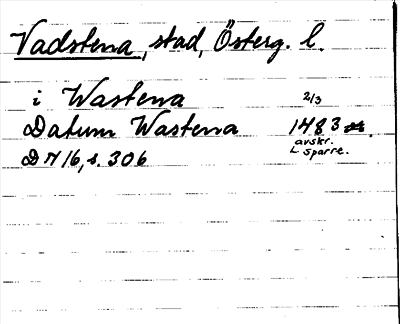 Vadstena, stad, Österg. l.
i Wastena 2/3
Datum Wastena 1483
avskr.
DN 16, s. 306 L Sparre.